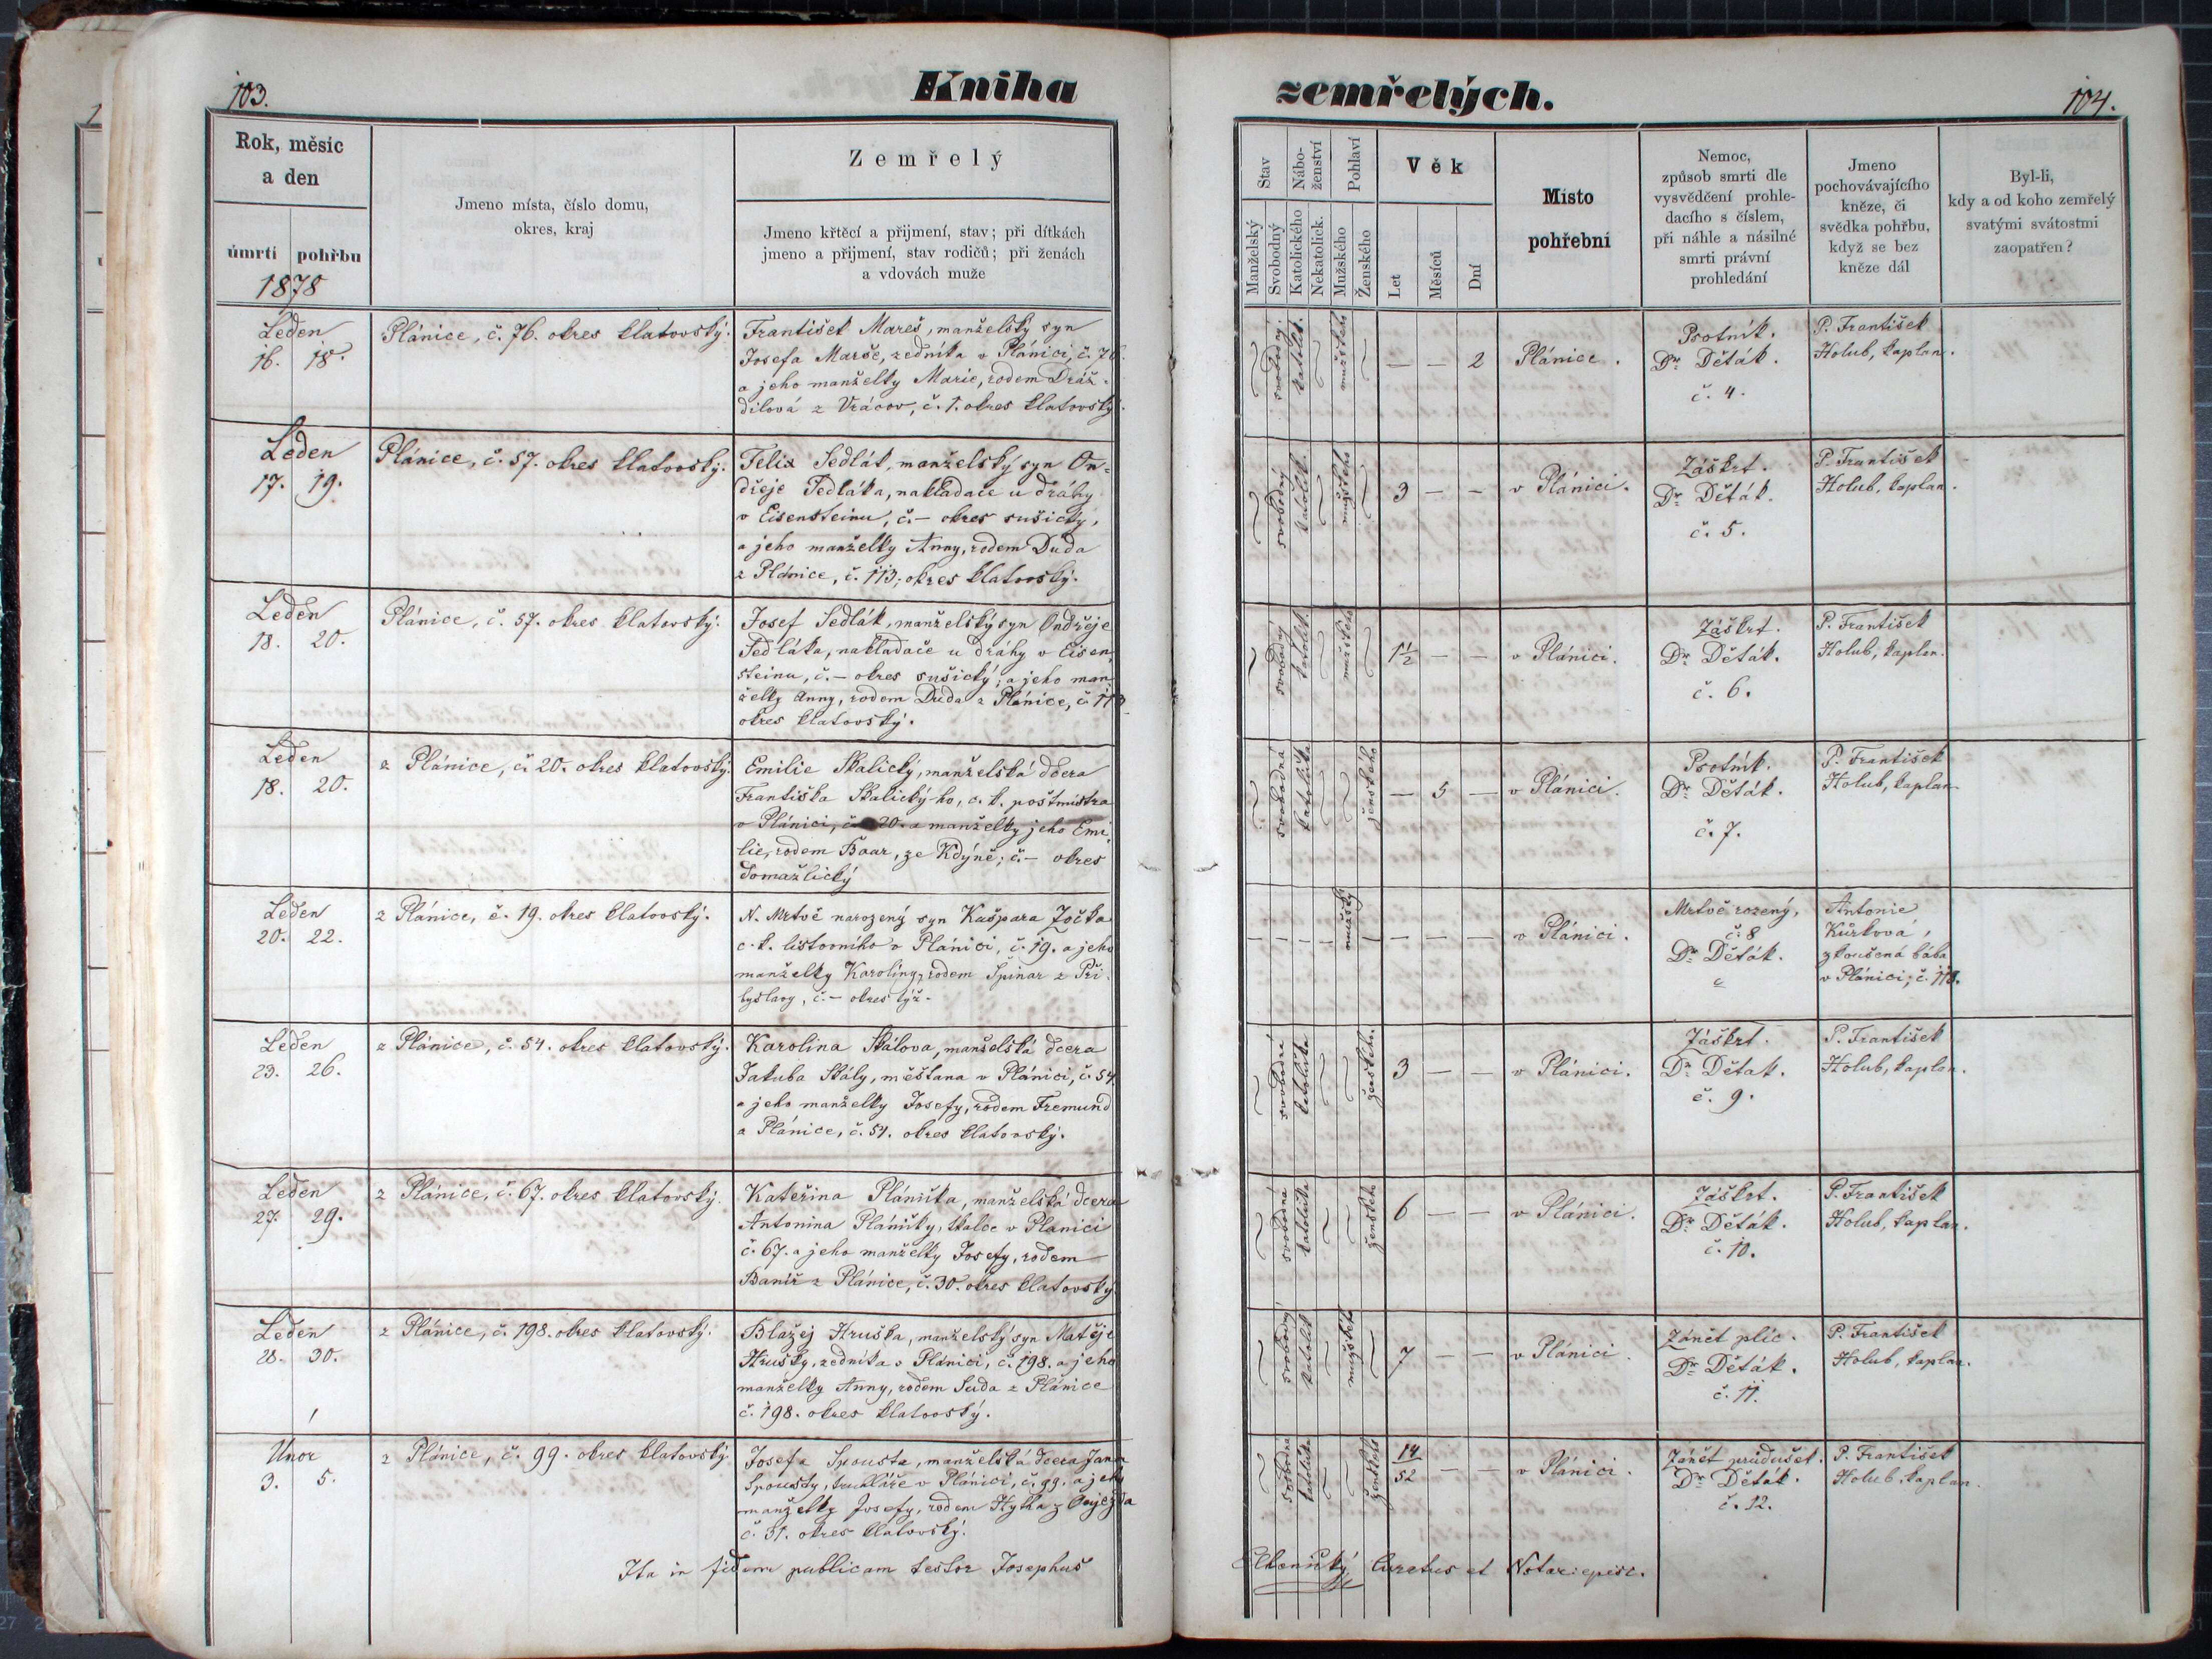 103.
Kniha
Rok, měsíc
a den
úmrtí
pohřbu
1878
Jmeno místa, číslo domu,
okres, kraj
Zemřelý
Jmeno křtěcí a přijmení, stav; při dítkách
jmeno a přijmení, stav rodičů; při ženách
a vdovách muže
Leden
16. 18.
Plánice, č. 76. okres klatovský.
František Mareš, manželský syn
Josefa Marše, zedníka v Plánici, č. 76.
a jeho manželky Marie, rodem Dráž-
dilová z Vrácov, č. 1. okres klatovský.
Leden
17. 19.
Plánice, č. 57. okres klatovský.
Felix Sedlák, manželský syn On-
dřeje Sedláka, nakladače u dráhy
v Eisensteinu, č. – okres sušický,
a jeho manželky Anny, rodem Duda
z Plánice, č. 113, okres klatovský.
Leden
18. 20.
Plánice, č. 57. okres klatovský.
Josef Sedlák, manželský syn Ondřeje
Sedláka, nakladače u dráhy v Eisen-
steinu, č. – okres sušický; a jeho man-
želky Anny, rodem Duda z Plánice, č. 113
okres klatovský.
Leden
18. 20.
z Plánice, č. 20. okres klatovský.
Emilie Skalický, manželská dcera
Františka Skalický-ho, c. k. poštmistra
v Plánici, č. 20. a manželky jeho Emi-
lie, rodem Baar, ze Kdýně; č. – okres
domažlický
Leden
20. 22.
z Plánice, č. 19. okres klatovský.
N. Mrtvě narozený syn Kašpara Zočka
c. k. listovního v Plánici, č. 19. a jeho
manželky Karoliny, rodem Špinar z Při-
byslavy, č. – okres týž.
Leden
23. 26.
z Plánice, č. 54. okres klatovský.
Karolina Skálova, manželská dcera
Jakuba Skály, měšťana v Plánici, č. 54
a jeho manželky Josefy, rodem Fremund
z Plánice, č. 51. okres klatovský.
Leden
27. 29.
z Plánice, č. 67. okres klatovský.
Kateřina Plánička, manželská dcera
Antonina Pláničky, tkalce v Plánici
č. 67. a jeho manželky Josefy, rodem
z Plánice, č. 30. okres klatovský
Leden
28. 30.
z Plánice, č. 198. okres klatovský.
Blažej Hruška, manželský syn Matěje
Hrušky, zedníka v Plánici, č. 198. a jeho
manželky Anny, rodem Suda z Plánice
č. 198. okres klatovský.
Únor
3. 5.
z Plánice, č. 99. okres klatovský
Josefa Spousta, manželská dcera Jana
Spousty, truhláře v Plánici, č. 99. a jeho
manželky Josefy, rodem z
č. 31. okres klatovský.
Ita in fidem publicam testor Josephus
zemřelých.
104.
Stav
Manželský
Svobodný
Nábo-
ženství
Katolického
Nekatolick.
Pohlaví
Mužského
Ženského
Věk
Let
Měsíců
Dní
Místo
pohřební
Nemoc,
způsob smrti dle
vysvědčení prohle-
dacího s číslem,
při náhle a násilné
smrti právní
prohledání
Jmeno
pochovávajícího
kněze, či
svědka pohřbu,
když se bez
kněze dál
Byl-li,
kdy a od koho zemřelý
svatými svátostmi
zaopatřen?
svobodný. katolík. mužského — — 2 Plánice.
Psotník.
Dr Děták.
č. 4.
P. František
Holub, kaplan.
svobodný katolík. mužského 3 — — v Plánici.
Záškrt.
Dr Děták.
č. 5.
P. František
Holub, kaplan.
svobodný katolík. mužského 1½ — — v Plánici.
Záškrt.
Dr Děták.
č. 6.
P. František
Holub, kaplan.
svobodná katolička ženského — 5 — v Plánici.
Psotník.
Dr Děták.
č. 7.
P. František
Holub, kaplan
— — — — mužský — — — — v Plánici.
Mrtvě rozený,
č. 8
Dr Děták.
Antonie
Kůrková,
zkoušená bába
v Plánici, č. 118.
svobodná katolička ženského. 3 — — v Plánici.
Záškrt.
Dr Děták.
č. 9.
P. František
Holub, kaplan.
svobodná katolička ženského 6 — — v Plánici.
Záškrt.
Dr Děták.
č. 10.
P. František
Holub, kaplan.
svobodný katolík mužského 7 — — v Plánici
Zánět plic.
Dr Děták.
č. 11.
P. František
Holub, kaplan.
svobodná katolička ženského 14/52 — — v Plánici.
Zánět průdušek.
Dr Děták.
č. 12.
P. František
Holub, kaplan.
Curatus et Notar: episc.